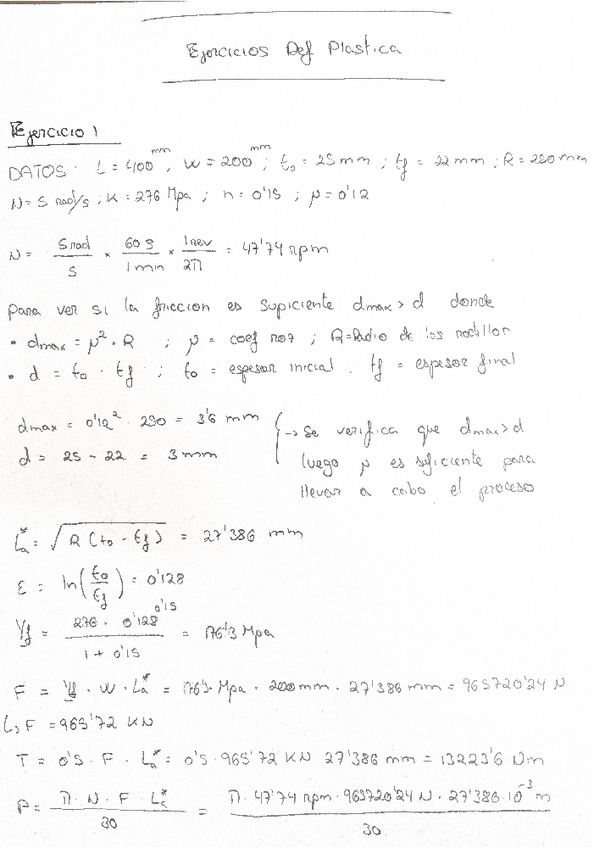 Ejercicios Def Plastica
Ejercicio 1
DATOS: L = 400 mm, W = 200 mm; t₀ = 25 mm; tf = 22 mm; R = 250 mm
N = 5 rad/s; K = 276 Mpa; n = 0'15; μ = 0'12
N = 5 rad/s × 60 s/1 min × 1 rev/2π = 47'74 rpm
para ver si la friccion es suficiente dmax > d donde
• dmax = μ² · R ; μ = coef roz ; R = Radio de los rodillos
• d = t₀ - tf ; t₀ = espesor inicial. tf = espesor final
dmax = 0'12² · 250 = 3'6 mm
d = 25 - 22 = 3 mm
→ Se verifica que dmax > d
luego μ es suficiente para
llevar a cabo el proceso
La* = √(R (t₀ - tf)) = 27'386 mm
ε = ln(t₀/tf) = 0'128
Yf = 276 · 0'128^0'15 / (1 + 0'15) = 176'3 Mpa
F = Yf · W · La* = 176'3 Mpa · 200 mm · 27'386 mm = 965720'24 N
↳ F = 965'72 KN
T = 0'5 · F · La* = 0'5 · 965'72 KN 27'386 mm = 13223'6 Nm
P = π · N · F · La* / 30 = π · 47'74 rpm · 965720'24 N · 27'386 · 10⁻³ m / 30